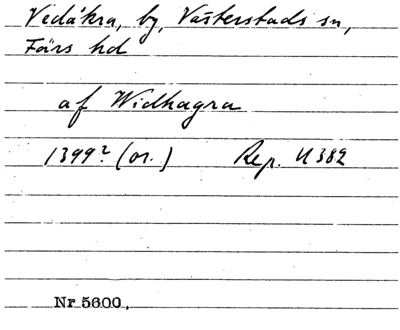 Vedåkra, by, Västerstads sn,
Färs hd
af Widhagra
1399? (or.) Rep. II 382
Nr 5600.